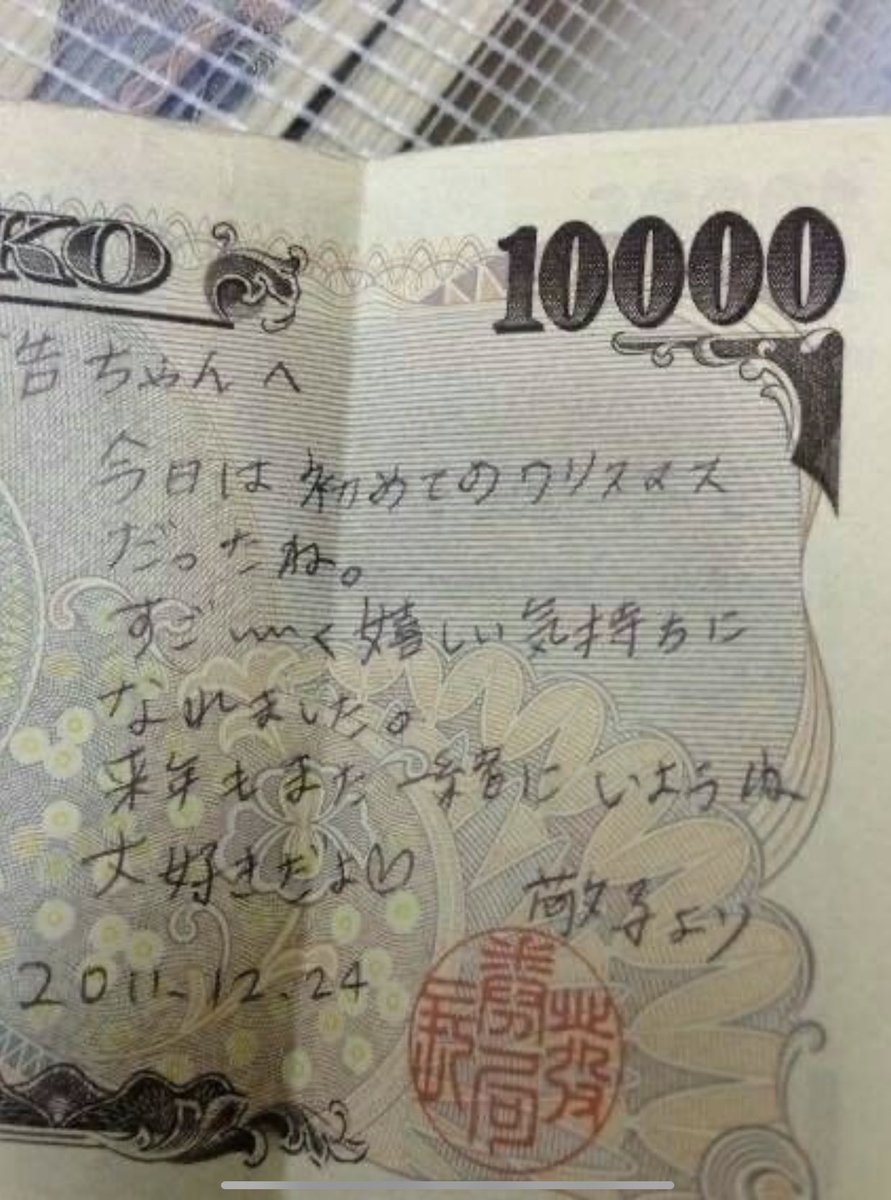 KO
10000
告ちゃんへ
今日は初めてのクリスマス
だったね。
すご〰く嬉しい気持ちに
なれました。
来年もまた一緒にいようね
大好きだよ♡
敬子より
2011.12.24
発券局長